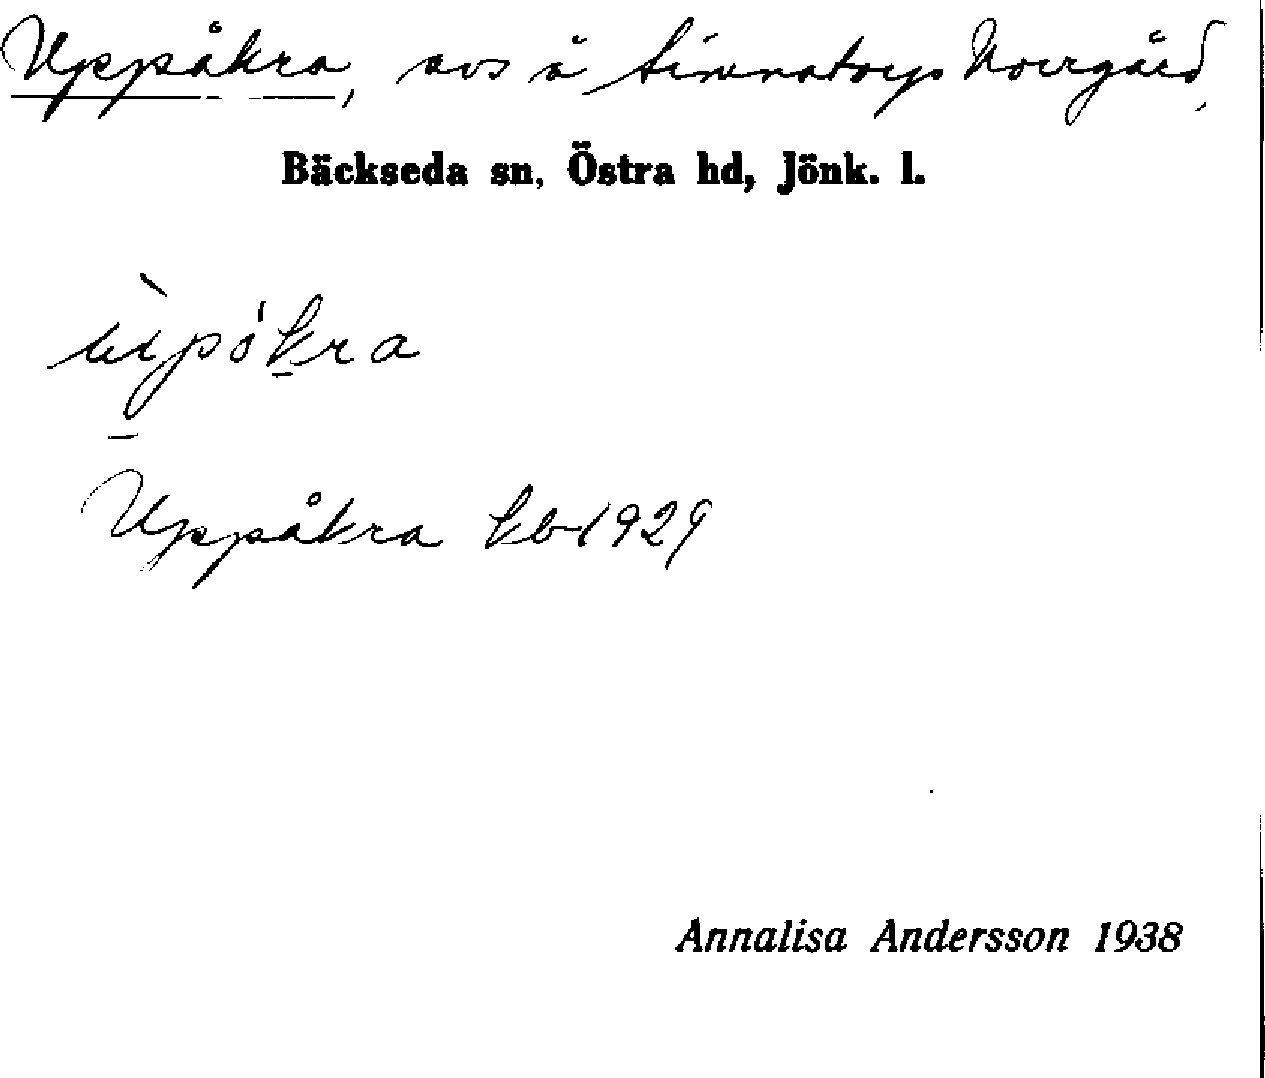 Uppåkra, avs å Simnatorps Norrgård,
Bäckseda sn, Östra hd, Jönk. l.
ùpókra
Uppåkra kb 1929
Annalisa Andersson 1938